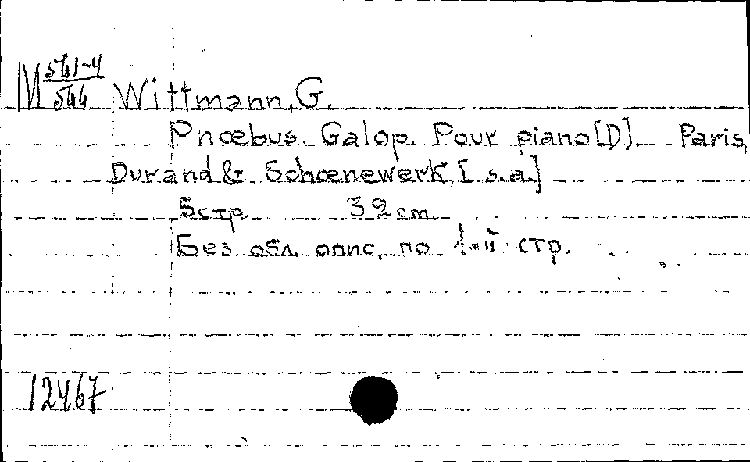 М 561-4/544 Wittmann, G.
Phœbus. Galop. Pour piano [D] Paris,
Durand & Schœnewerk, [s.a.]
5 стр 32 cm
Без обл, опис, по 1-й стр.
12467